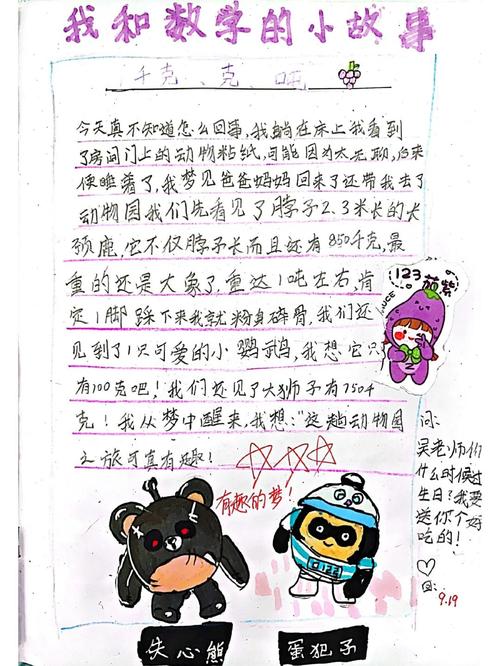 我和数学的小故事
千克、克、吨
今天真不知道怎么回事,我躺在床上我看到
了房间门上的动物粘纸,可能因为太无聊,后来
便睡着了,我梦见爸爸妈妈回来了还带我去了
动物园我们先看见了脖子2.3米长的长
颈鹿,它不仅脖子长而且还有850千克,最
重的还是大象了,重达1吨左右,肯
定1脚踩下来我就粉身碎骨,我们还
见到了1只可爱的小鹦鹉,我想它只
有100克吧!我们还见了大狮子有150千
克!我从梦中醒来,我想:“这趟动物园
之旅可真有趣!
有趣的梦!
123茄紫
问:
吴老师你
什么时候过
生日?我要
送你个好
吃的!
回:
9.19
失心熊
蛋犯子